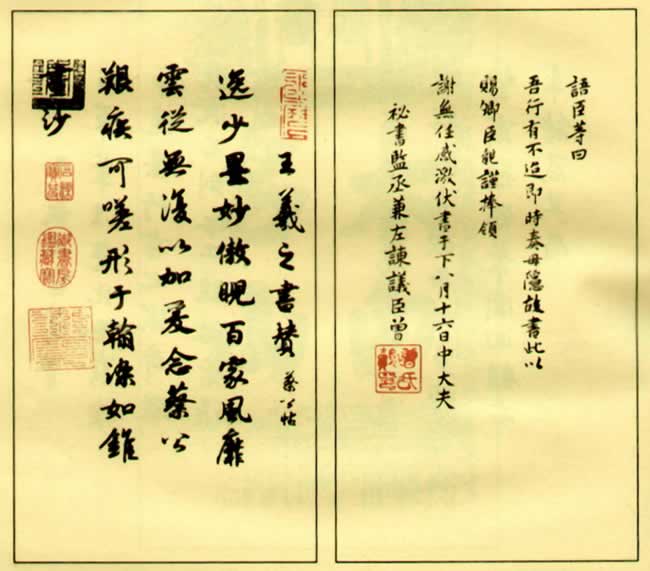 語臣等曰
吾行有不逮即時奏毋隱故書此以
賜卿臣覩謹捧領
謝無任感激伏書于下八月十六日中大夫
祕書監丞兼左諫議臣曾
曾氏
王羲之書贊 蔡公帖
逸少墨妙傲睨百家風靡
雲從無復以加爰念蔡公
艱疾可嗟形于翰染如錐
畫沙